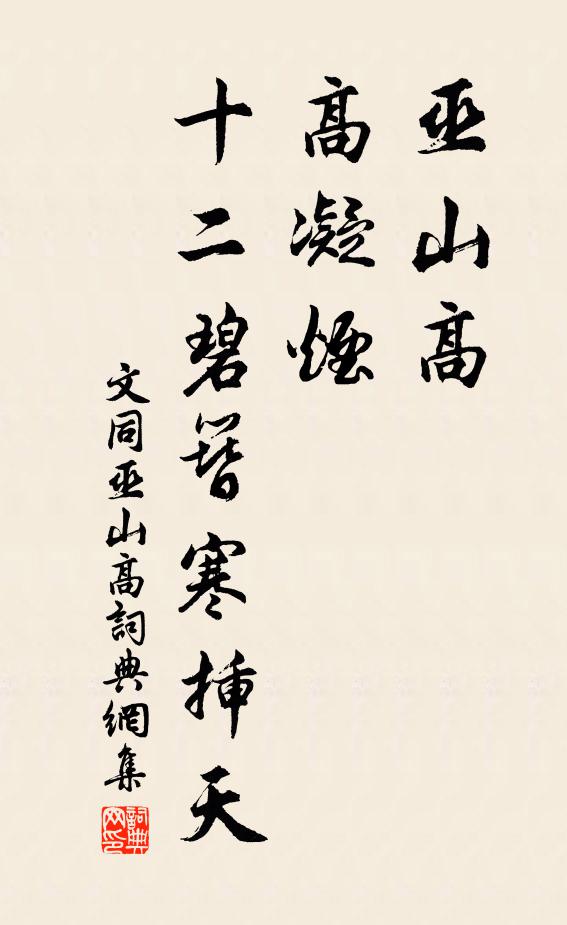 巫山高
高凝煙
十二碧簪寒插天
文同巫山高詞典網集
詞典网印